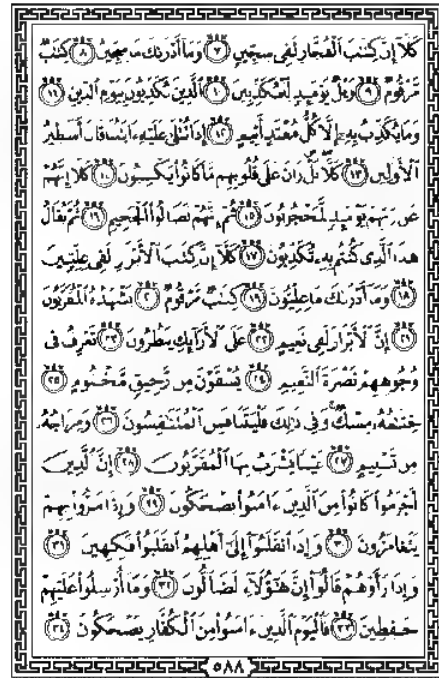 كَلَّآ إِنَّ كِتَٰبَ ٱلْفُجَّارِ لَفِى سِجِّينٍ ٧ وَمَآ أَدْرَىٰكَ مَا سِجِّينٌ ٨ كِتَٰبٌ
مَّرْقُومٌ ٩ وَيْلٌ يَوْمَئِذٍ لِّلْمُكَذِّبِينَ ١٠ ٱلَّذِينَ يُكَذِّبُونَ بِيَوْمِ ٱلدِّينِ ١١
وَمَا يُكَذِّبُ بِهِۦٓ إِلَّا كُلُّ مُعْتَدٍ أَثِيمٍ ١٢ إِذَا تُتْلَىٰ عَلَيْهِ ءَايَٰتُنَا قَالَ أَسَٰطِيرُ
ٱلْأَوَّلِينَ ١٣ كَلَّا بَلْ رَانَ عَلَىٰ قُلُوبِهِم مَّا كَانُوا۟ يَكْسِبُونَ ١٤ كَلَّآ إِنَّهُمْ
عَن رَّبِّهِمْ يَوْمَئِذٍ لَّمَحْجُوبُونَ ١٥ ثُمَّ إِنَّهُمْ لَصَالُوا۟ ٱلْجَحِيمِ ١٦ ثُمَّ يُقَالُ
هَٰذَا ٱلَّذِى كُنتُم بِهِۦ تُكَذِّبُونَ ١٧ كَلَّآ إِنَّ كِتَٰبَ ٱلْأَبْرَارِ لَفِى عِلِّيِّينَ
١٨ وَمَآ أَدْرَىٰكَ مَا عِلِّيُّونَ ١٩ كِتَٰبٌ مَّرْقُومٌ ٢٠ يَشْهَدُهُ ٱلْمُقَرَّبُونَ
٢١ إِنَّ ٱلْأَبْرَارَ لَفِى نَعِيمٍ ٢٢ عَلَى ٱلْأَرَآئِكِ يَنظُرُونَ ٢٣ تَعْرِفُ فِى
وُجُوهِهِمْ نَضْرَةَ ٱلنَّعِيمِ ٢٤ يُسْقَوْنَ مِن رَّحِيقٍ مَّخْتُومٍ ٢٥
خِتَٰمُهُۥ مِسْكٌ وَفِى ذَٰلِكَ فَلْيَتَنَافَسِ ٱلْمُتَنَٰفِسُونَ ٢٦ وَمِزَاجُهُۥ
مِن تَسْنِيمٍ ٢٧ عَيْنًا يَشْرَبُ بِهَا ٱلْمُقَرَّبُونَ ٢٨ إِنَّ ٱلَّذِينَ
أَجْرَمُوا۟ كَانُوا۟ مِنَ ٱلَّذِينَ ءَامَنُوا۟ يَضْحَكُونَ ٢٩ وَإِذَا مَرُّوا۟ بِهِمْ
يَتَغَامَزُونَ ٣٠ وَإِذَا ٱنقَلَبُوٓا۟ إِلَىٰٓ أَهْلِهِمُ ٱنقَلَبُوا۟ فَكِهِينَ ٣١
وَإِذَا رَأَوْهُمْ قَالُوٓا۟ إِنَّ هَٰٓؤُلَآءِ لَضَآلُّونَ ٣٢ وَمَآ أُرْسِلُوا۟ عَلَيْهِمْ
حَٰفِظِينَ ٣٣ فَٱلْيَوْمَ ٱلَّذِينَ ءَامَنُوا۟ مِنَ ٱلْكُفَّارِ يَضْحَكُونَ ٣٤
٥٨٨